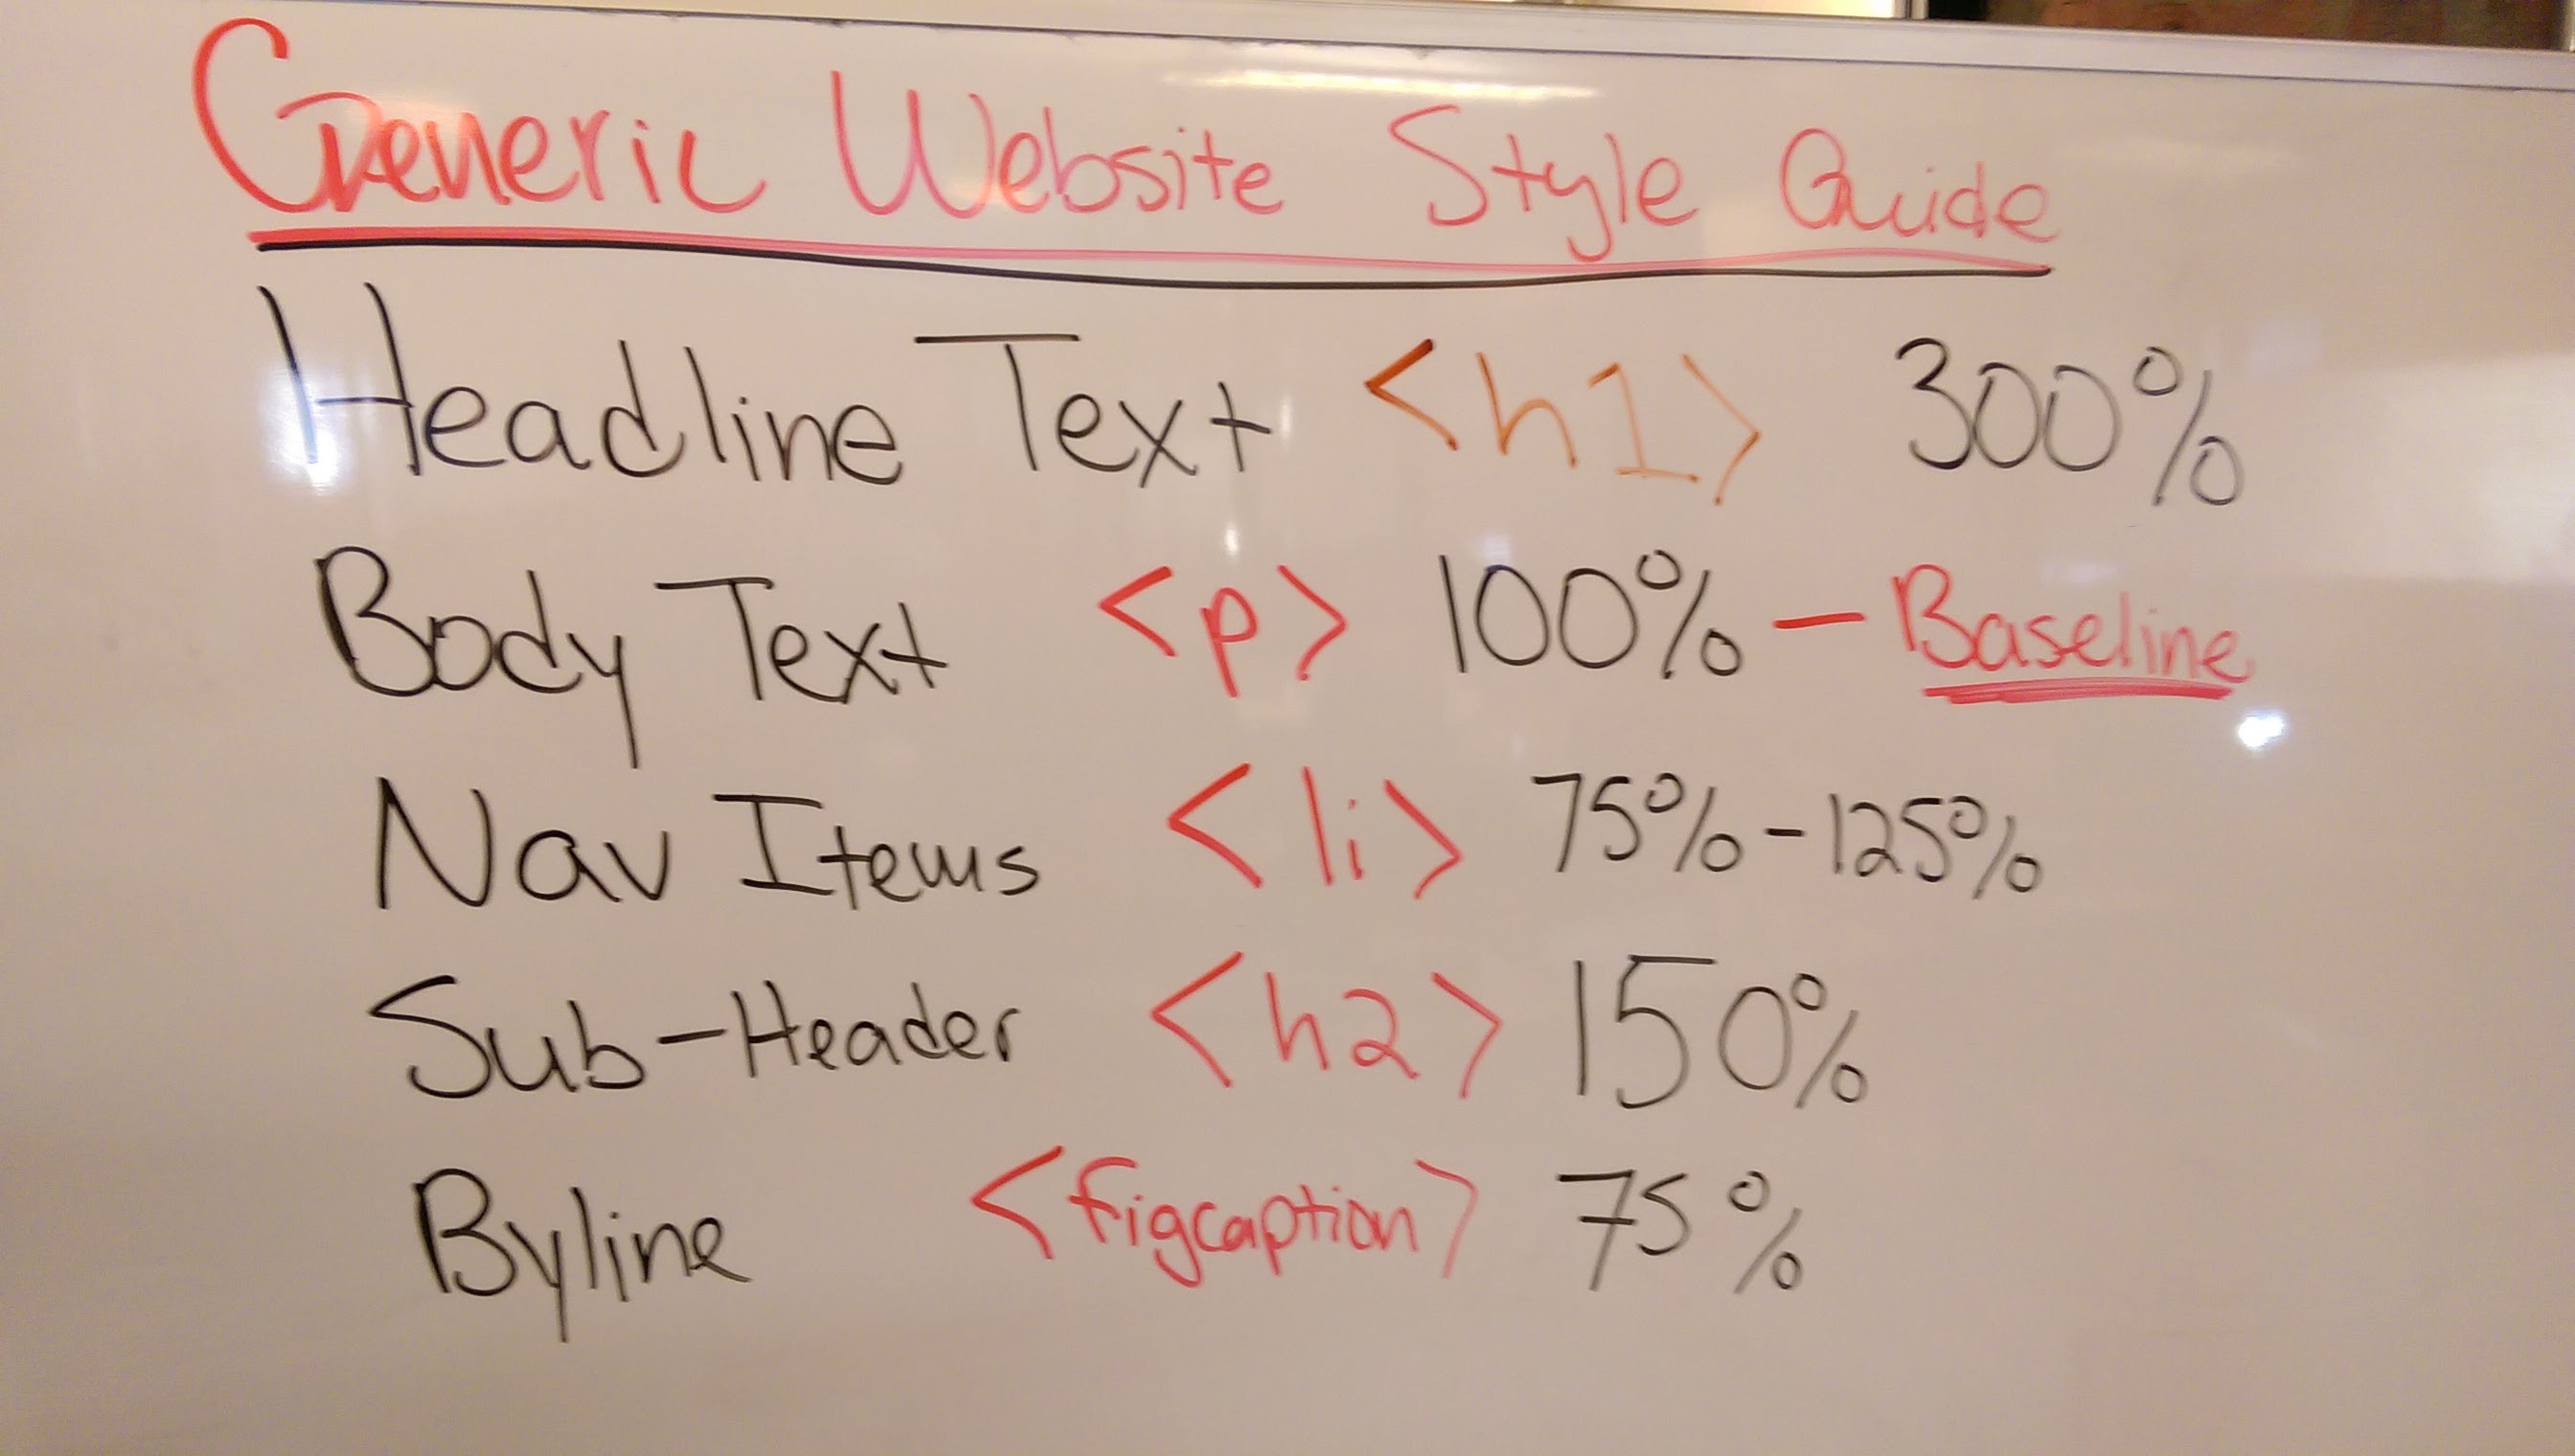 Generic Website Style Guide
Headline Text <h1> 300%
Body Text <p> 100% - Baseline
Nav Items <li> 75% - 125%
Sub-Header <h2> 150%
Byline <figcaption> 75%